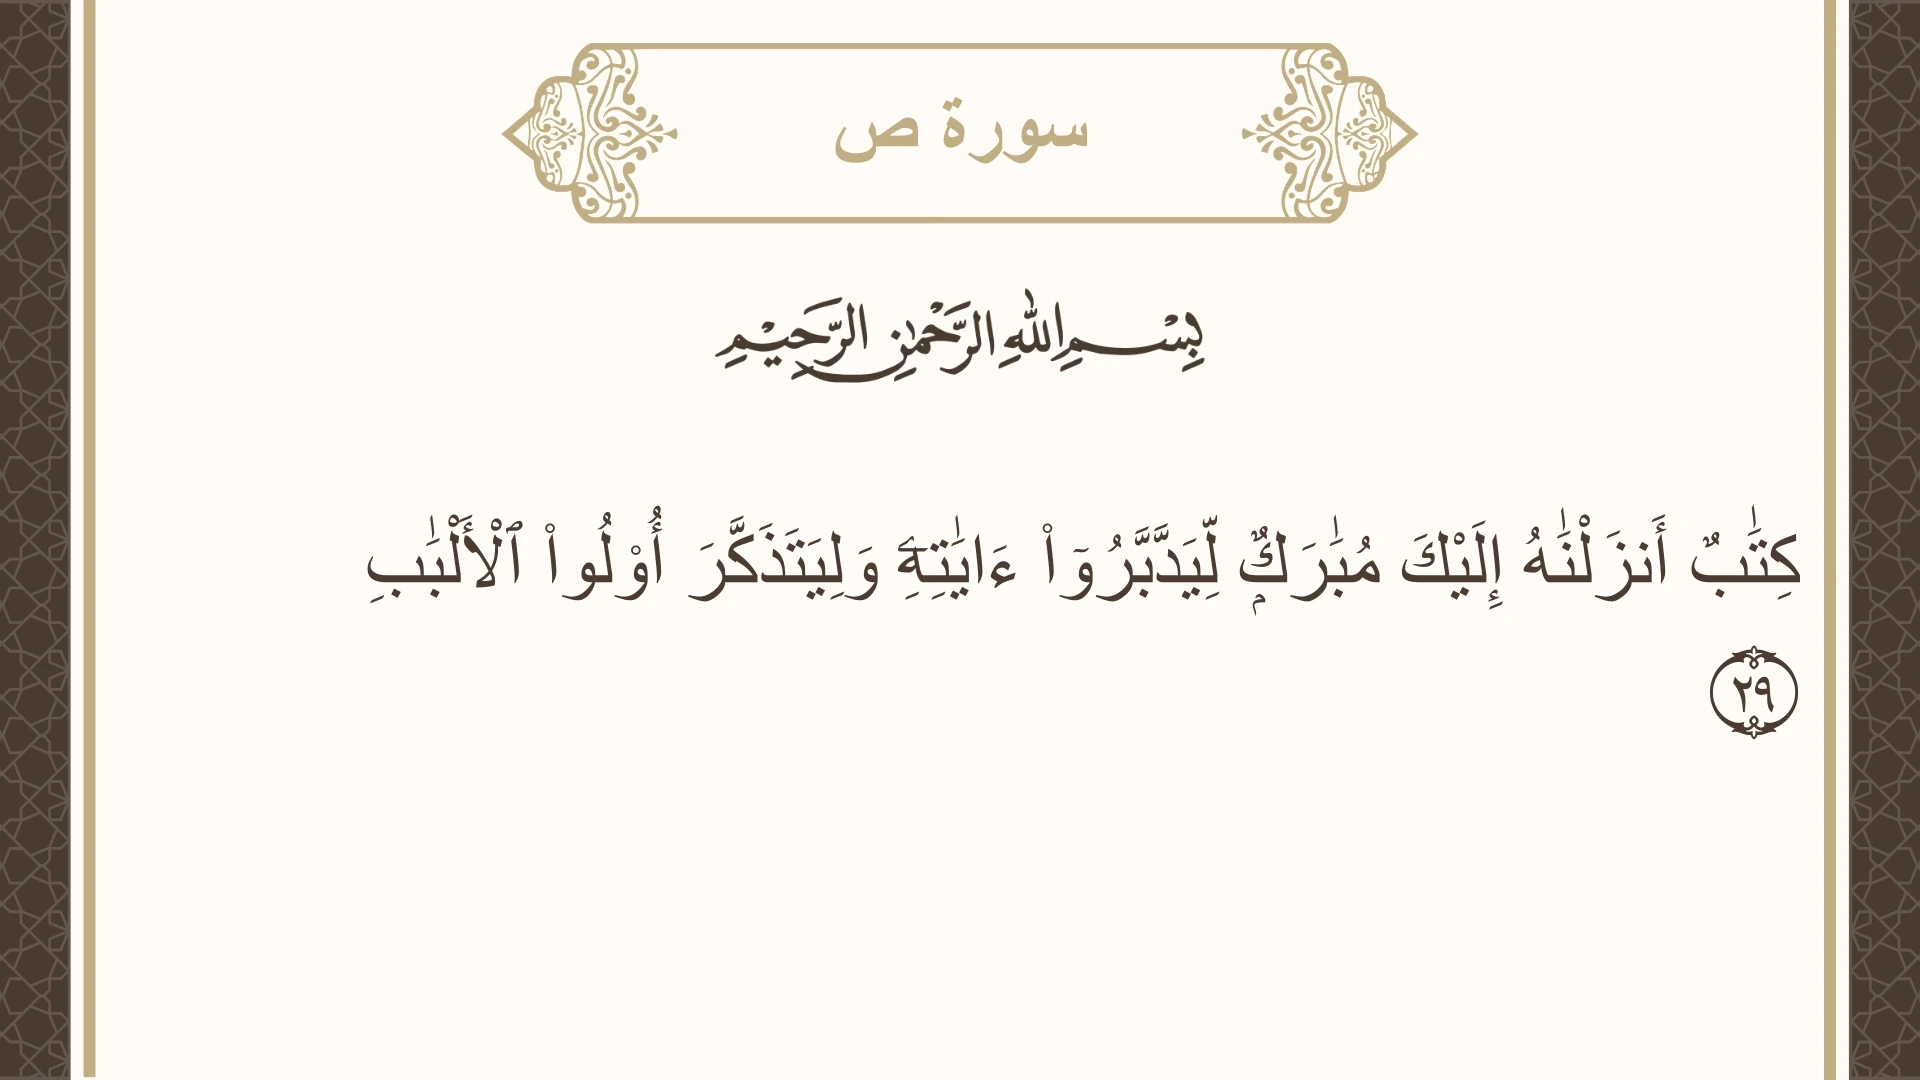 سورة ص
بِسْمِ اللهِ الرَّحْمٰنِ الرَّحِيْمِ
كِتَٰبٌ أَنزَلْنَٰهُ إِلَيْكَ مُبَٰرَكٌۭ لِّيَدَّبَّرُوٓا۟ ءَايَٰتِهِۦ وَلِيَتَذَكَّرَ أُو۟لُوا۟ ٱلْأَلْبَٰبِ
٢٩